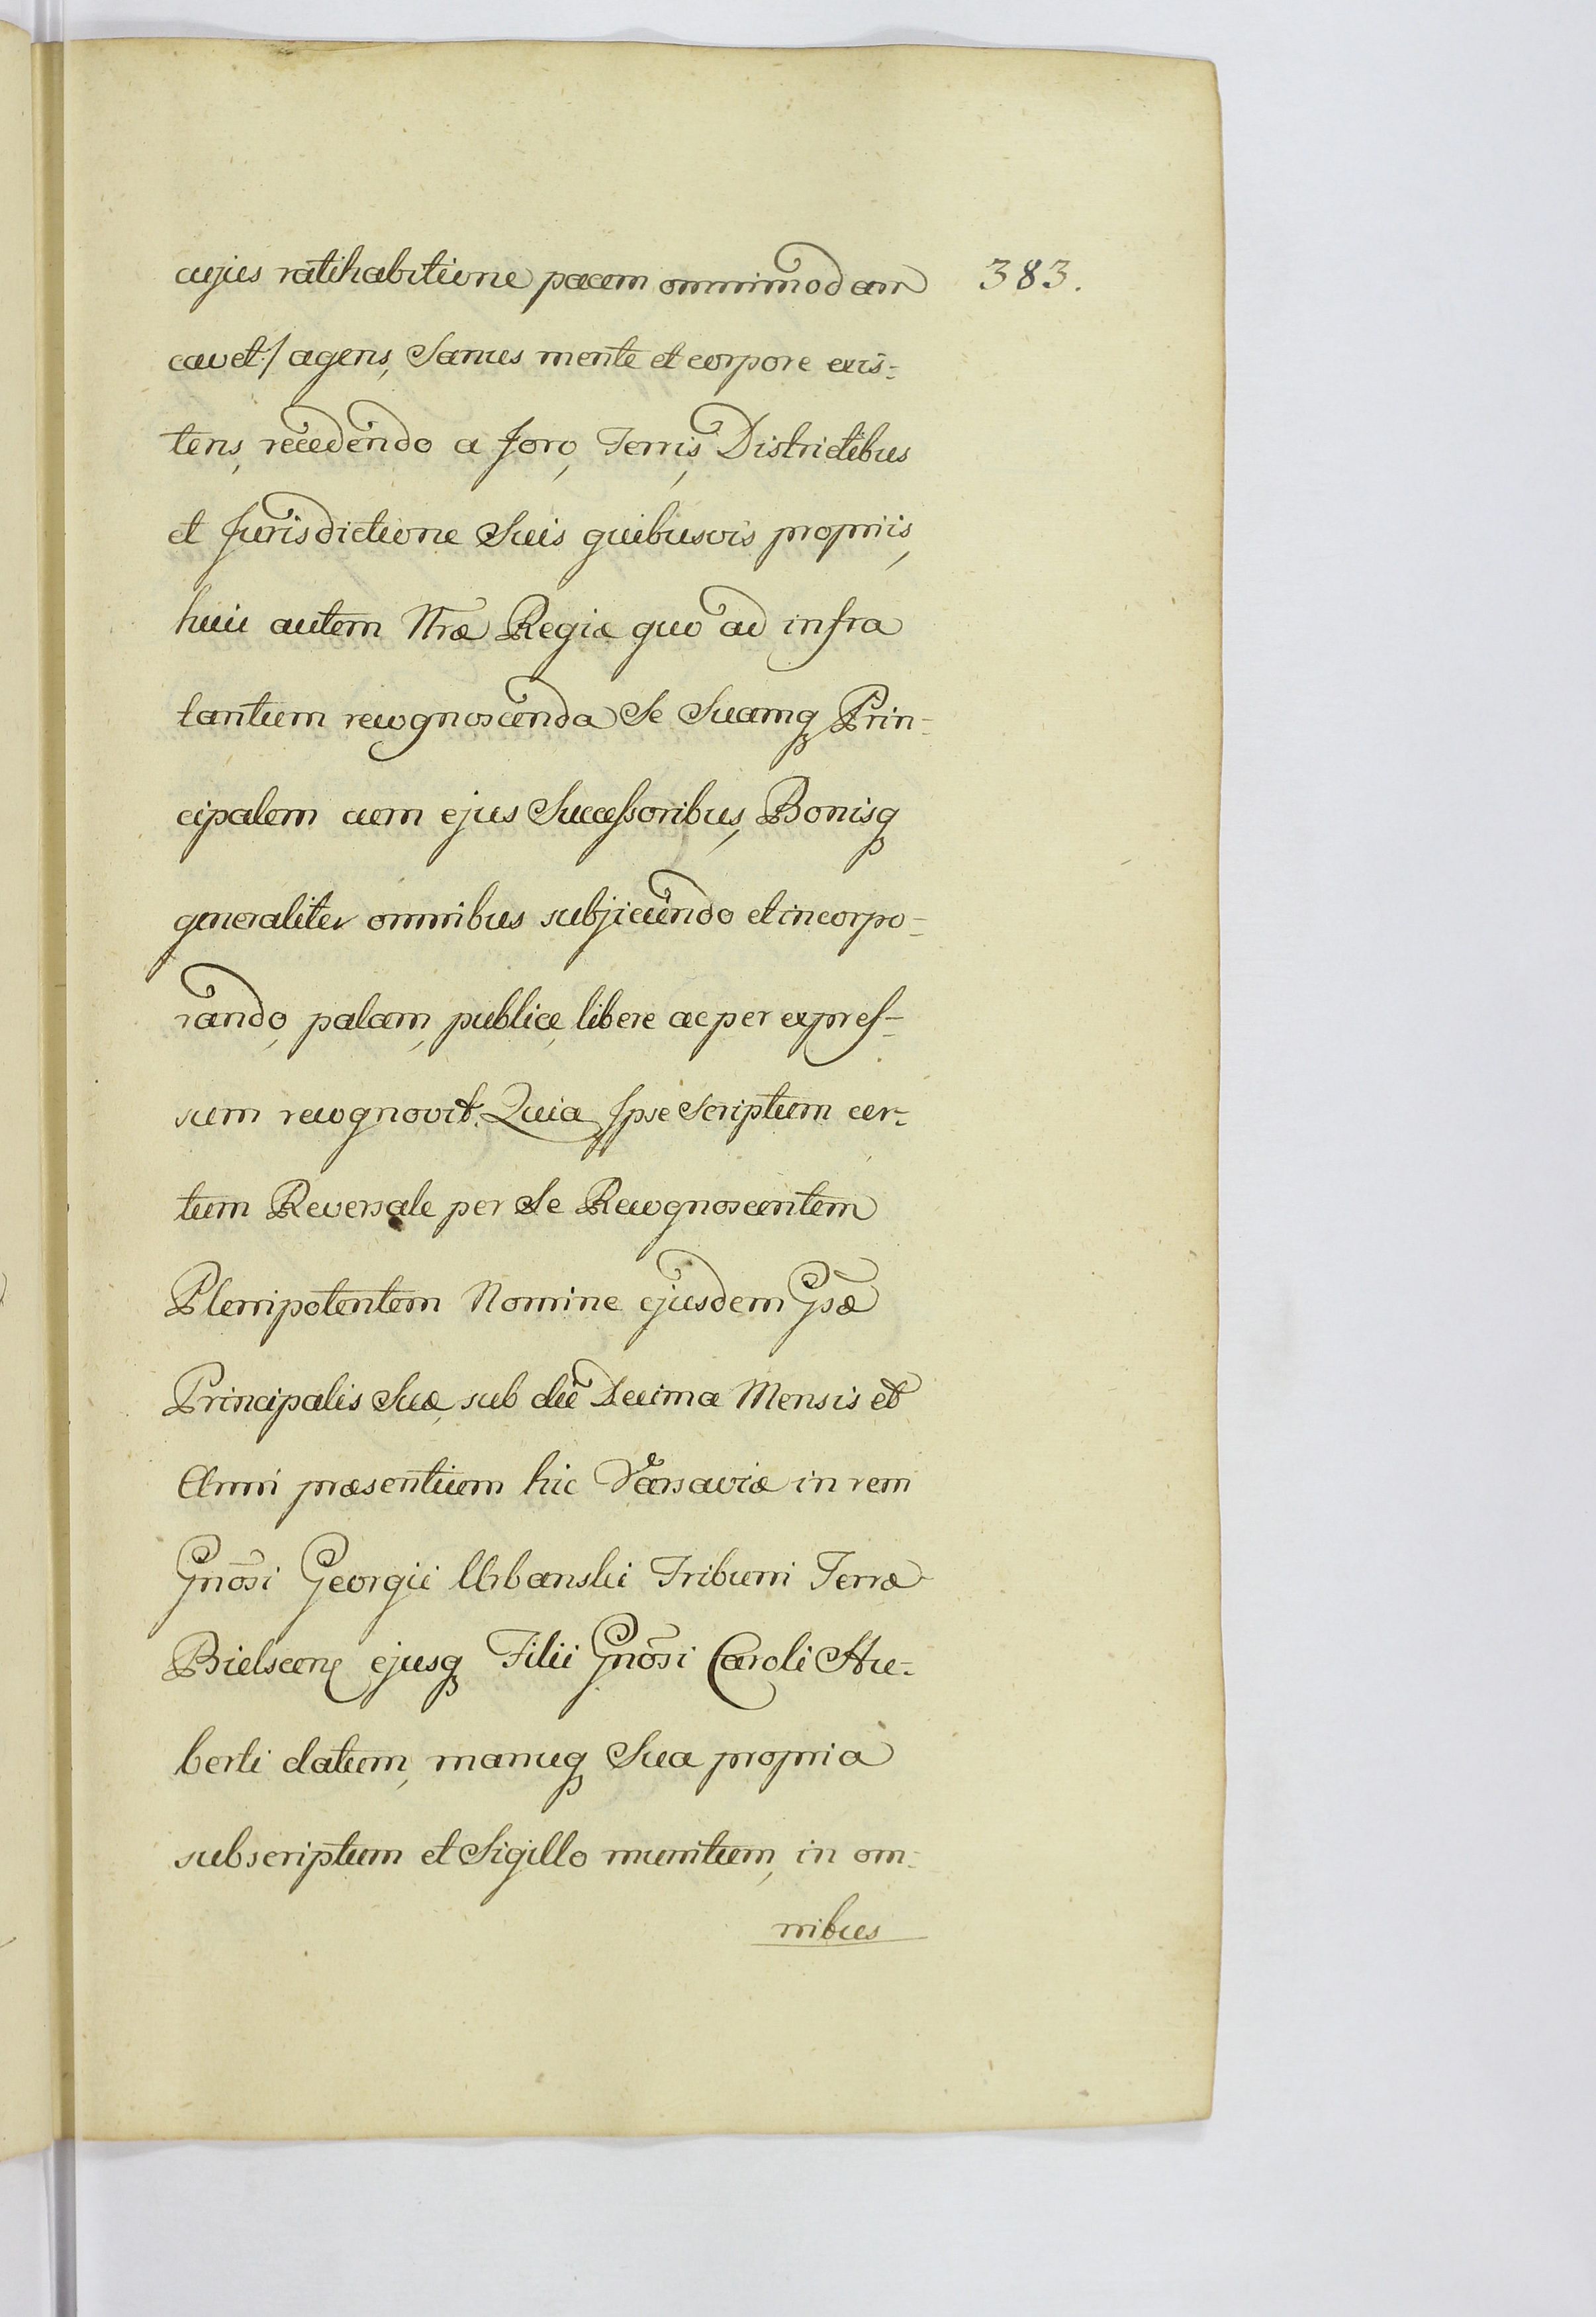 cujus ratihabitione pacem omnimodam 383.
cavet/ agens, Sanus mente et corpore exis-
tens, recedendo a foro, Terris, Districtibus
et Jurisdictione Suis quibusvis propriis,
huic autem Nræ Regiæ quo ad infra
tantum recognoscenda Se Suamq Prin-
cipalem cum ejus Successoribus, Bonisq
generaliter omnibus subjiciendo et incorpo-
rando, palam, publice, libere ac per expres-
sum recognovit. Quia Ipse Scriptum cer-
tum Reversale per Se Recognoscentem
Plenipotentem Nomine ejusdem Gsæ
Principalis Suæ, sub die Decima Mensis et
Anni præsentium hic Varsaviæ in rem
Gnōsi Georgii Urbanski Tribuni Terræ
Bielscen ejusq Filii Gnōsi Caroli Hu-
berti datum, manuq Sua propria
subscriptum et Sigillo munitum, in om-
nibus